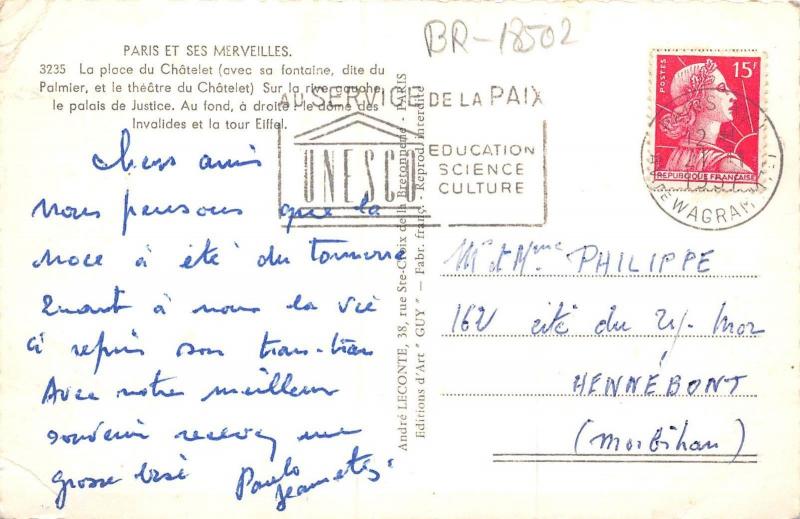 BR-18502
PARIS ET SES MERVEILLES.
3235 La place du Châtelet (avec sa fontaine, dite du
Palmier, et le théâtre du Châtelet) Sur la rive gauche,
le palais de Justice. Au fond, à droite : le dôme des
Invalides et la tour Eiffel.
AU SERVICE DE LA PAIX
UNESCO
EDUCATION
SCIENCE
CULTURE
POSTES
15F
REPUBLIQUE FRANÇAISE
AV. DE WAGRAM
chers amis
nous pensons que la
noce à été du tonnerre
Quant à nous la vie
a repris son tran-tran
Avec notre meilleur
souvenir recevez une
grosse bise Paulo
Jeannette
André LECONTE, 38, rue Ste-Croix de la Bretonnerie - PARIS
Editions d'Art "GUY" - Fabr. franç. - Reprod. interdite
Mr et Mme PHILIPPE
162 cité du
HENNÉBONT
(Morbihan)